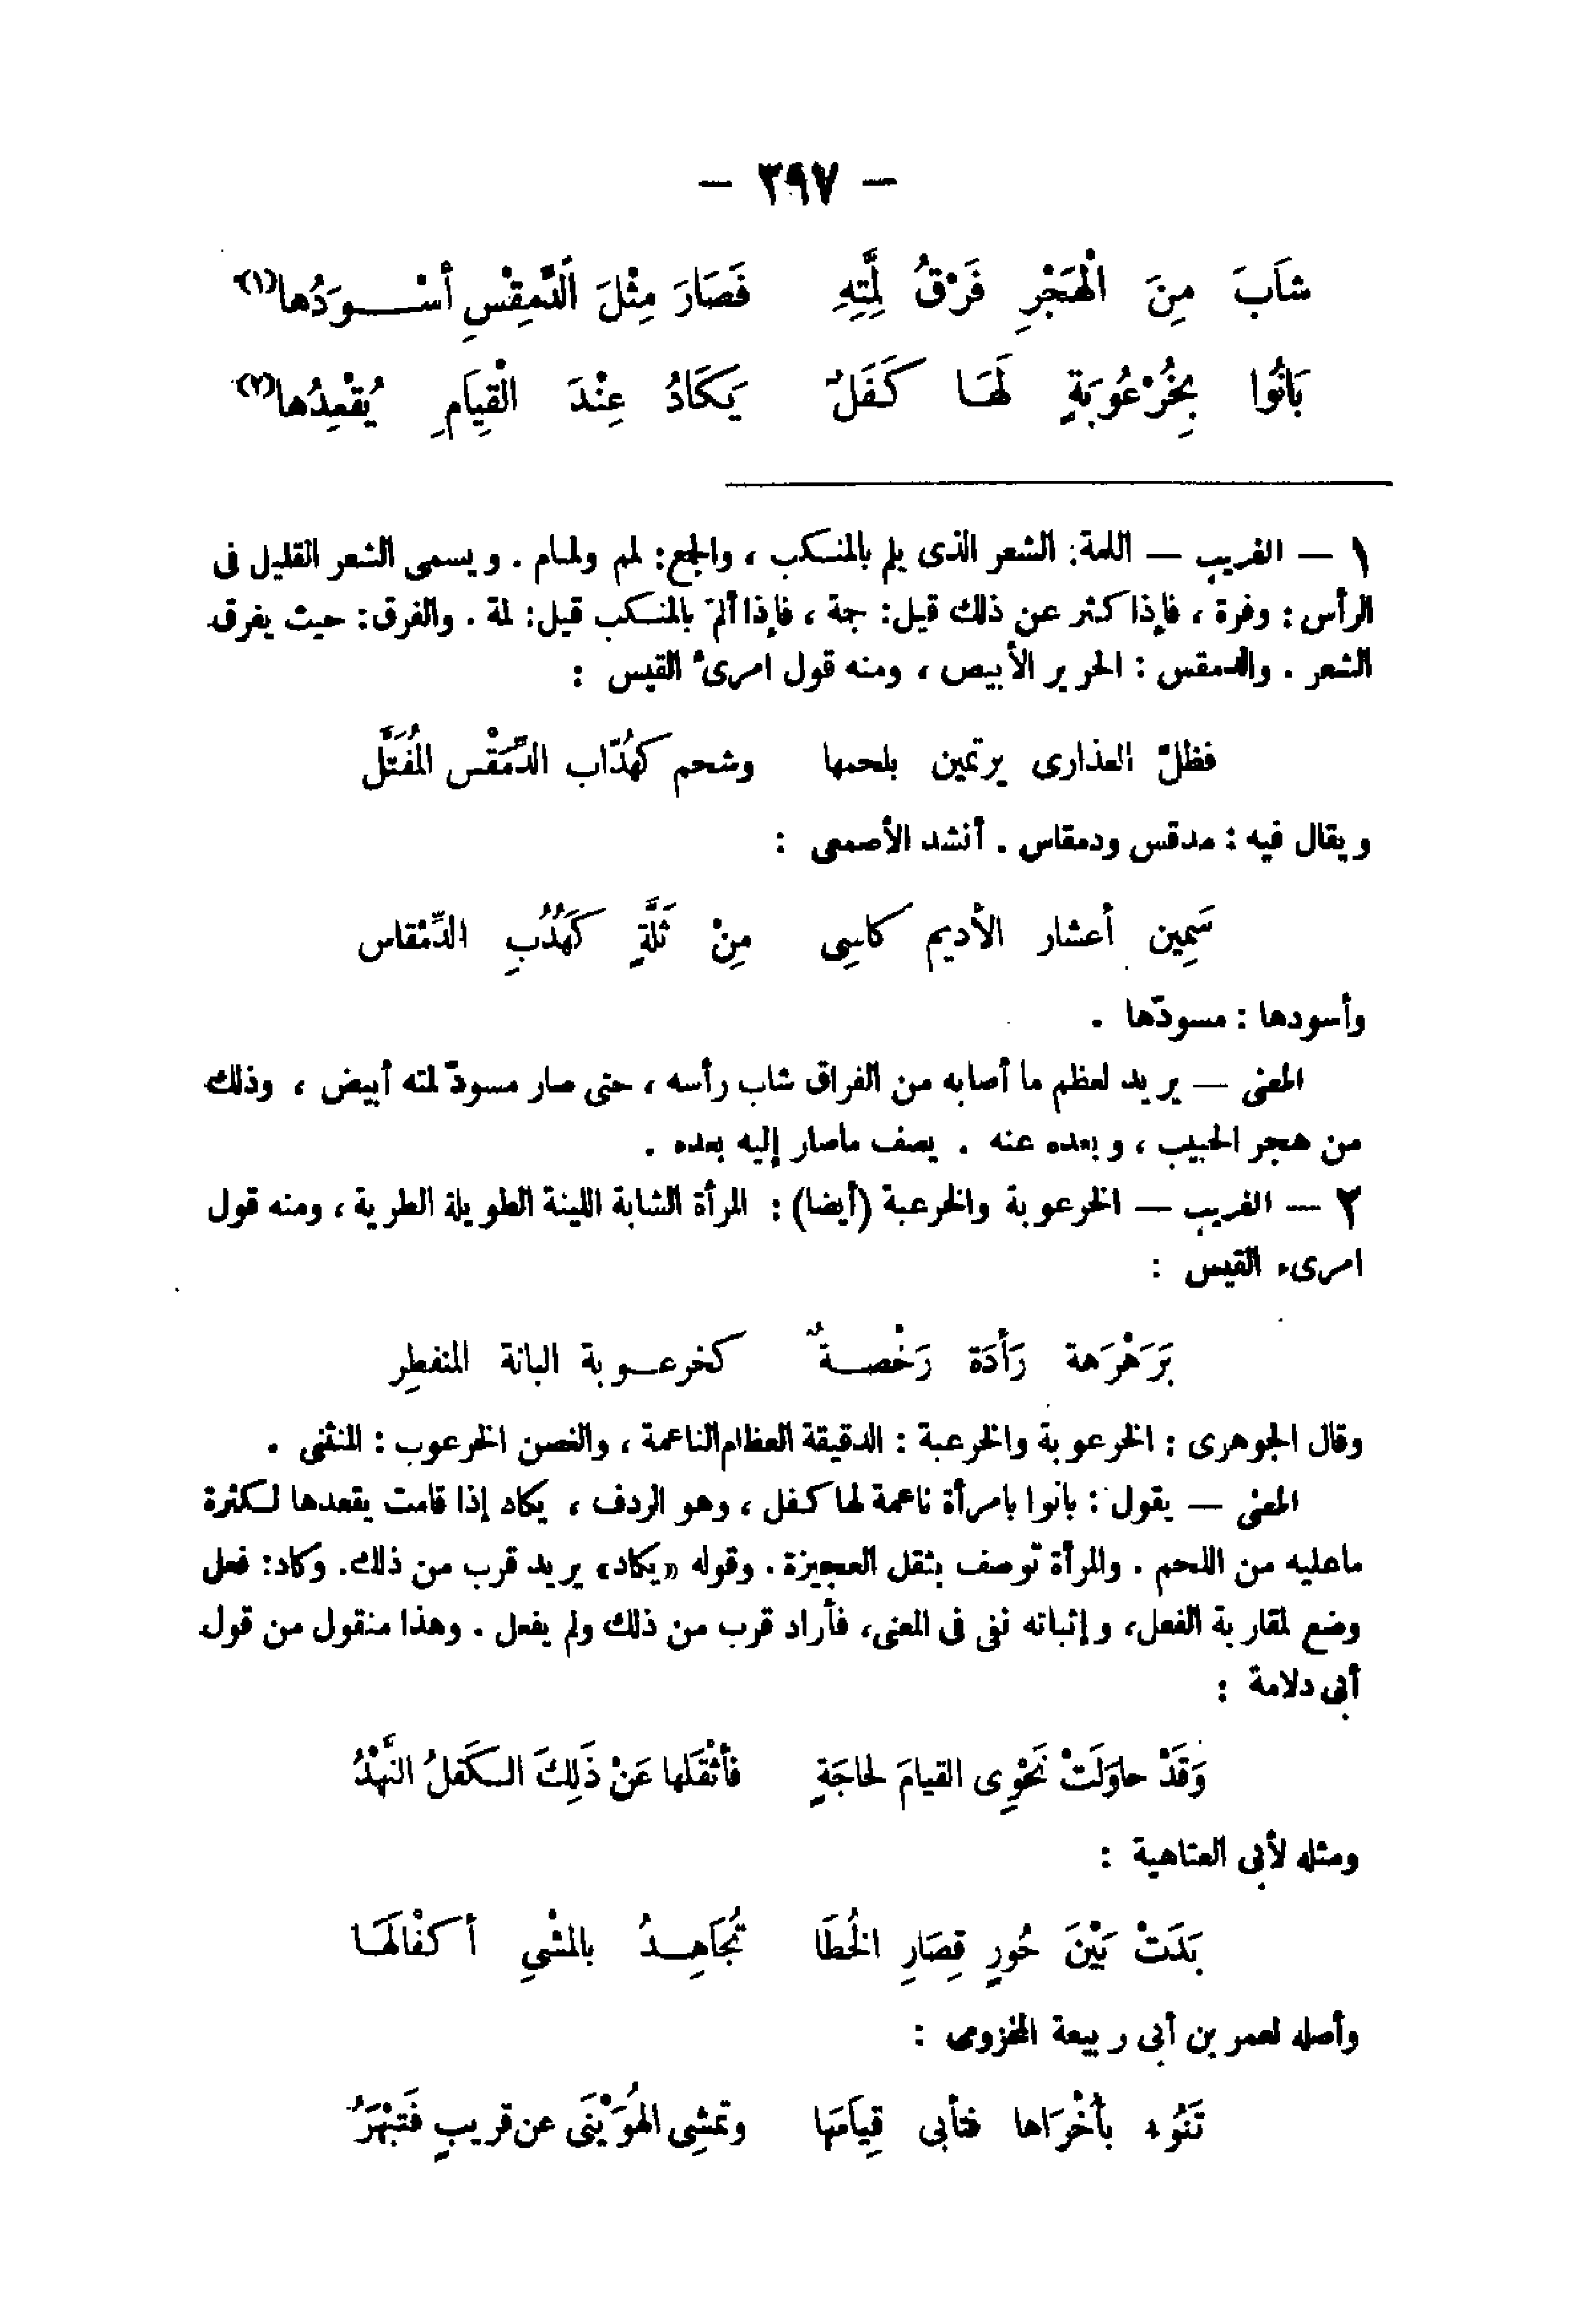 — ٣٩٧ —
شَابَ مِنَ الْهَجْرِ فَرْقُ لِمَّتِهِ فَصَارَ مِثْلَ الدِّمَقْسِ أسْـــوَدُها(١)
بَانُوا بِخُرْعُوبَةٍ لَهَا كَفَلٌ يَكَادُ عِنْدَ الْقِيَامِ يُقْعِدُها(٢)
١ — الغريب — اللمة: الشعر الذى يلم بالمنكب ، والجمع: لمم ولمام . ويسمى الشعر القليل فى
الرأس : وفرة ، فإذا كثر عن ذلك قيل: جمة ، فإذا ألمّ بالمنكب قيل: لمة . والفرق: حيث يفرق
الشعر . والدمقس : الحرير الأبيض ، ومنه قول امرئ القيس :
فظلّ العذارى يرتمين بلحمها وشحم كهُدّاب الدِّمَقْس المُفَتَّل
ويقال فيه : مدقس ودمقاس . أنشد الأصمعى :
سَمِين أعشار الأديم كاسِى مِنْ ثَلَّةٍ كَهُدُبِ الدِّمْقاس
وأسودها : مسودّها .
المعنى — يريد لعظم ما أصابه من الفراق شاب رأسه ، حتى صار مسودّ لمته أبيض ، وذلك
من هجر الحبيب ، وبعده عنه . يصف ماصار إليه بعده .
٢ — الغريب — الخرعوبة والخرعبة (أيضا) : المرأة الشابة اللينة الطويلة الطرية ، ومنه قول
امرىء القيس :
بَرَهْرَهة رَأدَة رَخْصــةٌ كخرعــوبة البانة المنفطِر
وقال الجوهرى : الخرعوبة والخرعبة : الدقيقة العظام الناعمة ، والغصن الخرعوب : المنثنى .
المعنى — يقول : بانوا بامرأة ناعمة لها كفل ، وهو الردف ، يكاد إذا قامت يقعدها لكثرة
ماعليه من اللحم . والمرأة توصف بثقل العجيزة . وقوله «يكاد» يريد قرب من ذلك. وكاد: فعل
وضع لمقاربة الفعل، وإثباته نفى فى المعنى، فأراد قرب من ذلك ولم يفعل . وهذا منقول من قول
أبى دلامة :
وَقَدْ حاوَلَتْ نَحْوِى القيامَ لحاجَةٍ فأثْقَلها عَنْ ذَلِكَ الكَفَلُ النَّهْدُ
ومثله لأبى العتاهية :
بَدَتْ بَيْنَ حُورٍ قِصَارِ الخُطَا تُجَاهِــدُ بالمشْىِ أكفْالَهَــا
وأصله لعمر بن أبى ربيعة المخزومى :
تَنُوء بأُخْرَاها فتأبى قِيَامَها وتمشِى الهُوَيْنَى عن قريبٍ فَتَبْهَرُ